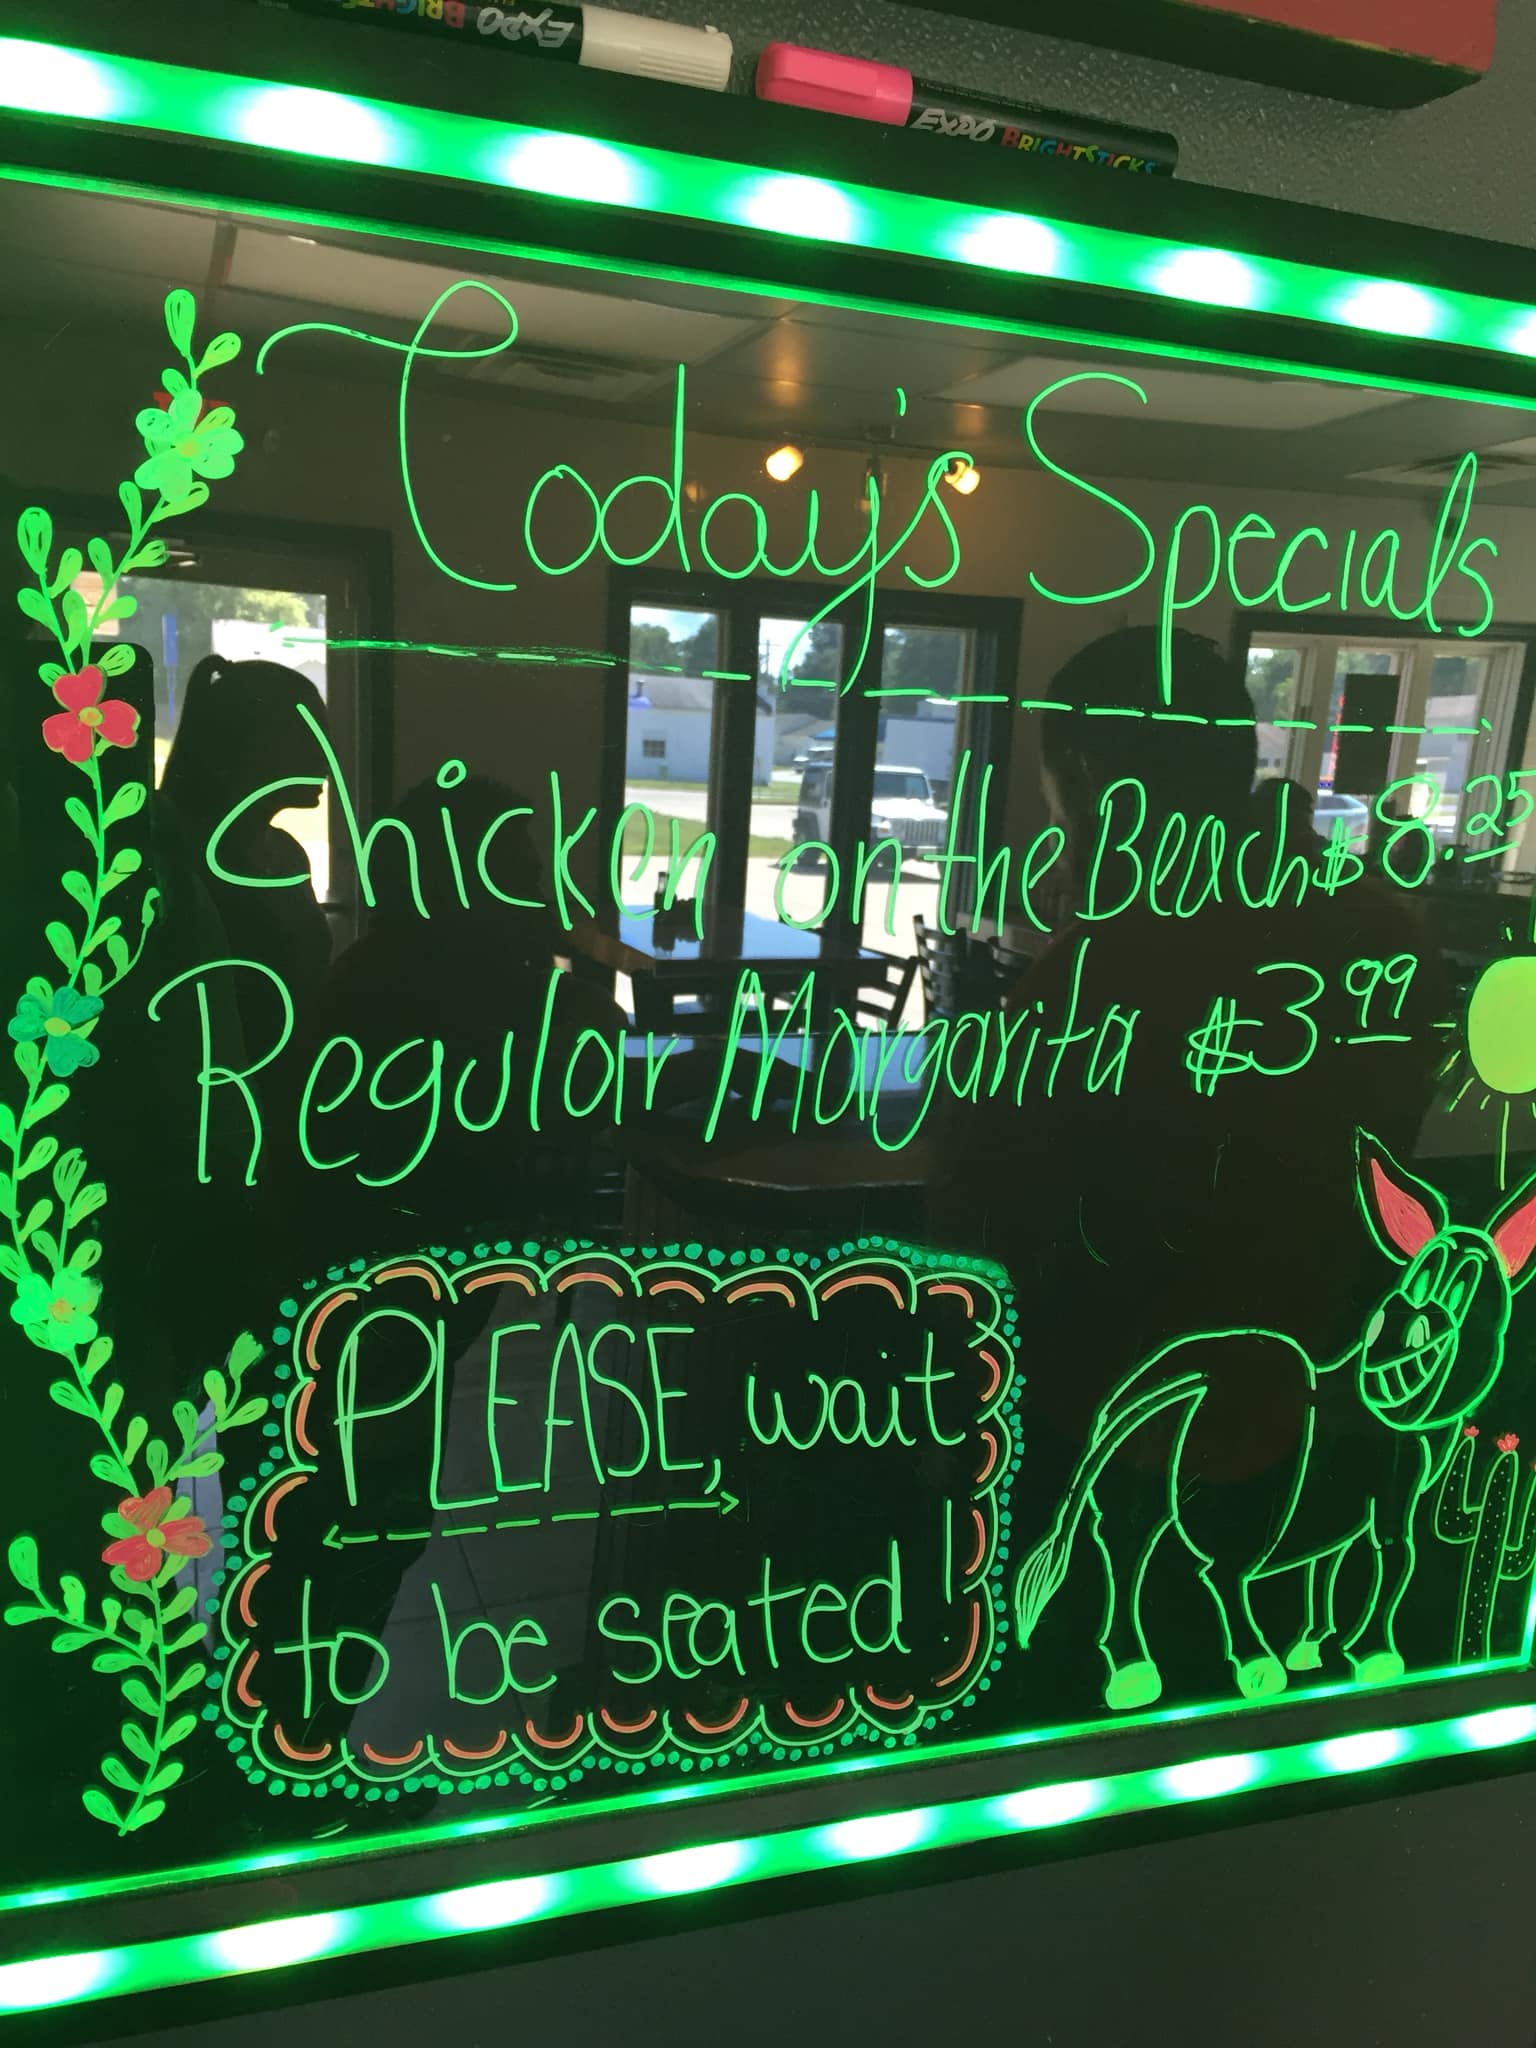 EXPO BRIGHTSTICKS
EXPO BRIGHTSTICKS
Today's Specials
Chicken on the Beach $8.25
Regular Margarita $3.99
PLEASE, wait
to be seated!